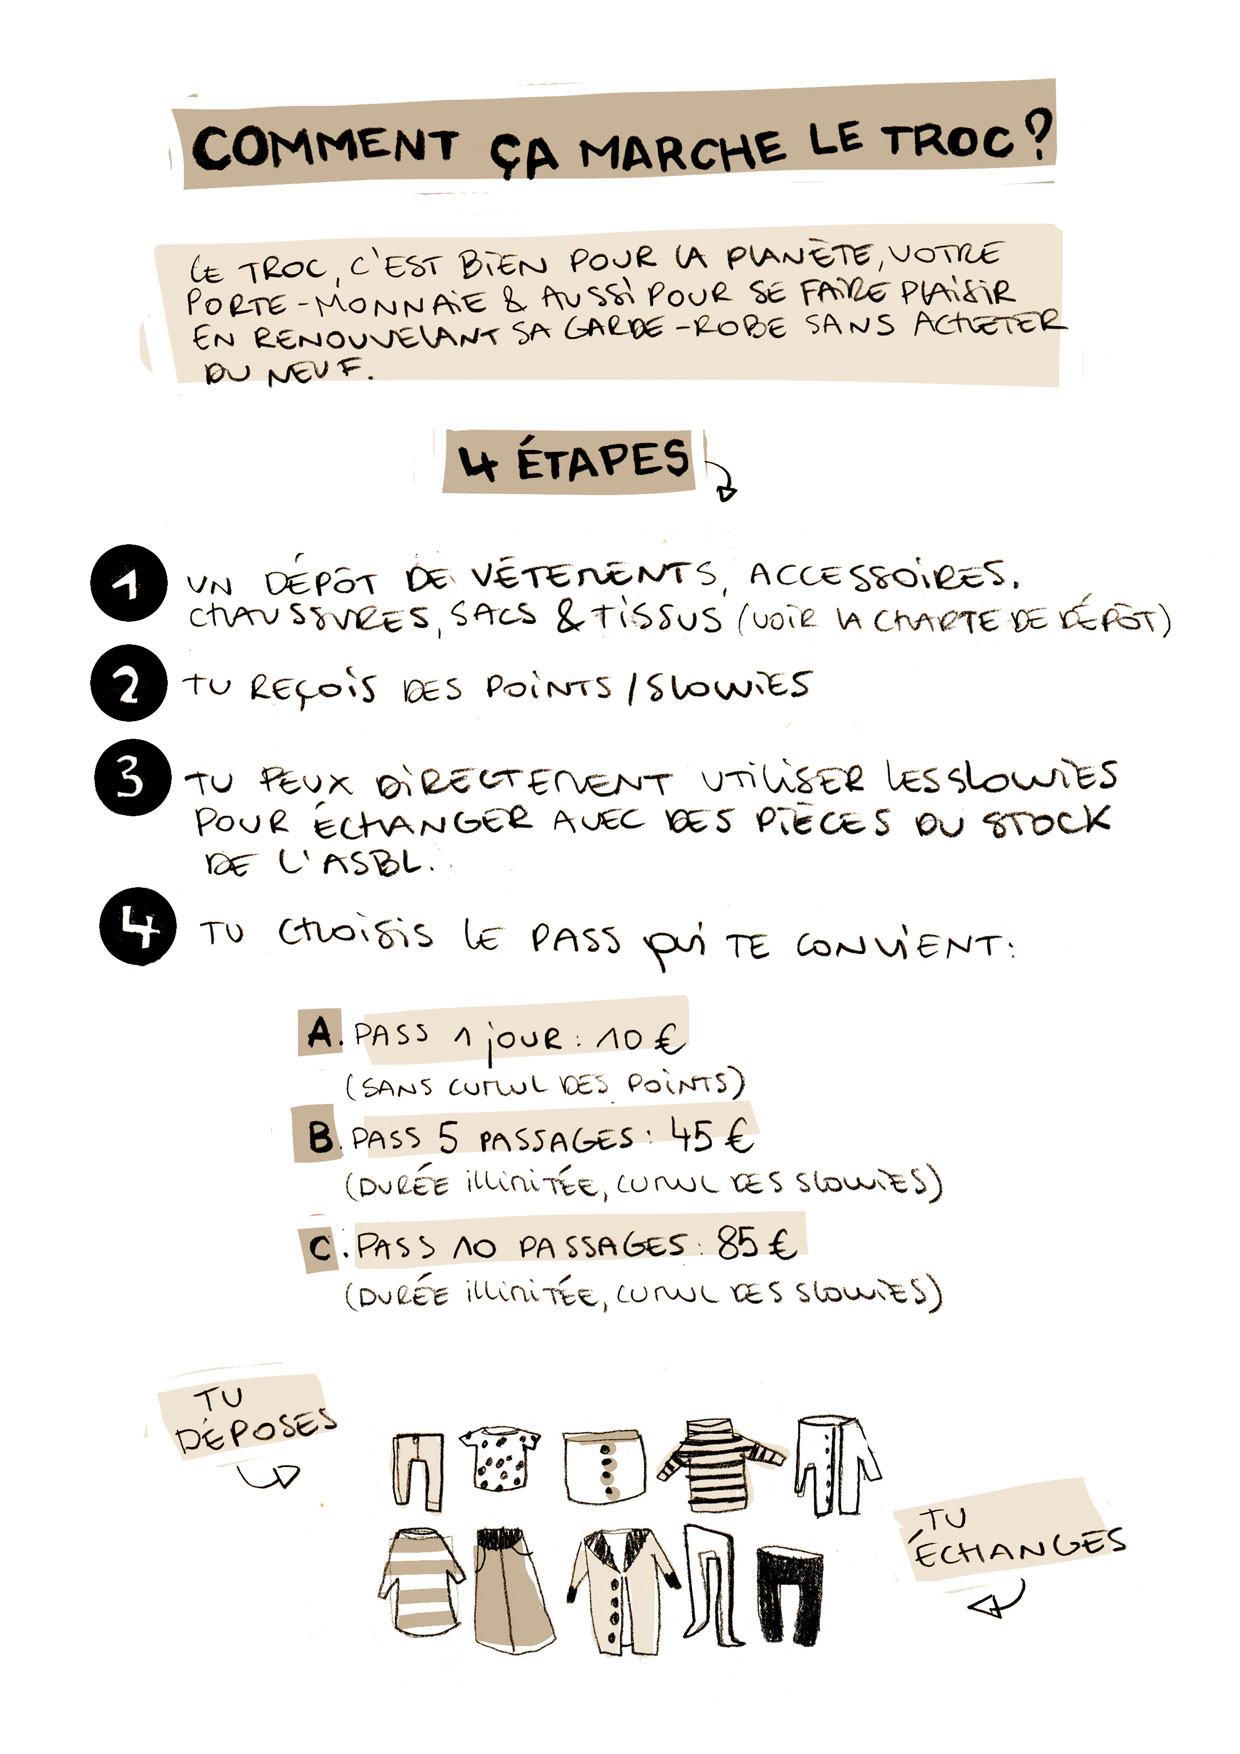 COMMENT ÇA MARCHE LE TROC ?
LE TROC, C'EST BIEN POUR LA PLANÈTE, VOTRE
PORTE-MONNAIE & AUSSI POUR SE FAIRE PLAISIR
EN RENOUVELANT SA GARDE-ROBE SANS ACHETER
DU NEUF.
4 ÉTAPES
1 UN DÉPÔT DE VÊTEMENTS, ACCESSOIRES,
CHAUSSURES, SACS & TISSUS (VOIR LA CHARTE DE DÉPÔT)
2 TU REÇOIS DES POINTS / SLOWIES
3 TU PEUX DIRECTEMENT UTILISER LES SLOWIES
POUR ÉCHANGER AVEC DES PIÈCES DU STOCK
DE L'ASBL.
4 TU CHOISIS LE PASS QUI TE CONVIENT :
A. PASS 1 JOUR : 10 €
(SANS CUMUL DES POINTS)
B. PASS 5 PASSAGES : 45 €
(DURÉE ILLIMITÉE, CUMUL DES SLOWIES)
C. PASS 10 PASSAGES : 85 €
(DURÉE ILLIMITÉE, CUMUL DES SLOWIES)
TU
DÉPOSES
TU
ÉCHANGES